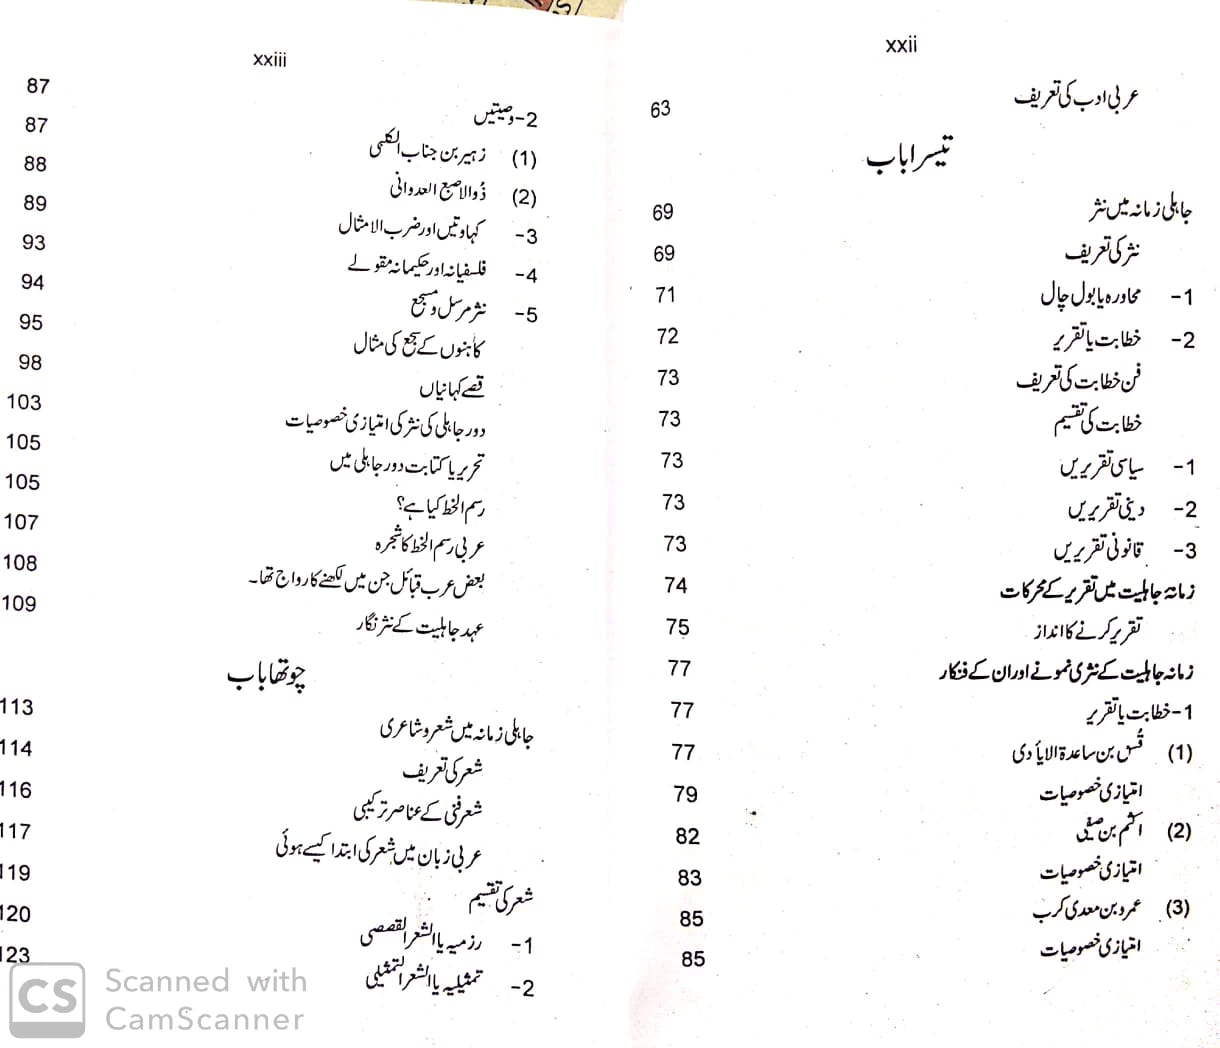 xxii
عربی ادب کی تعریف 63
تیسرا باب
جاہلی زمانہ میں نثر 69
نثر کی تعریف 69
1- محاورہ یا بول چال 71
2- خطابت یا تقریر 72
فن خطابت کی تعریف 73
خطابت کی تقسیم 73
1- سیاسی تقریریں 73
2- دینی تقریریں 73
3- قانونی تقریریں 73
زمانۂ جاہلیت میں تقریر کے محرکات 74
تقریر کرنے کا انداز 75
زمانہ جاہلیت کے نثری نمونے اور ان کے فنکار 77
1- خطابت یا تقریر 77
(1) قُس بن ساعدۃ الایأدی 77
امتیازی خصوصیات 79
(2) اکثم بن صیفی 82
امتیازی خصوصیات 83
(3) عمرو بن معدی کرب 85
امتیازی خصوصیات 85
xxiii
2- وصیتیں 87
(1) زہیر بن جناب الکلبی 87
(2) ذُوالاصبع العدوانی 88
3- کہاوتیں اور ضرب الامثال 89
4- فلسفیانہ اور حکیمانہ مقولے 93
5- نثر مرسل و مسجع 94
کاہنوں کے سجع کی مثال 95
قصے کہانیاں 98
دور جاہلی کی نثر کی امتیازی خصوصیات 103
تحریر یا کتابت دور جاہلی میں 105
رسم الخط کیا ہے؟ 105
عربی رسم الخط کا شجرہ 107
بعض عرب قبائل جن میں لکھنے کا رواج تھا۔ 108
عہد جاہلیت کے نثر نگار 109
چوتھا باب
جاہلی زمانہ میں شعر و شاعری 113
شعر کی تعریف 114
شعر فنی کے عناصر ترکیبی 116
عربی زبان میں شعر کی ابتدا کیسے ہوئی 117
شعر کی تقسیم 119
1- رزمیہ یا الشعر القصصی 120
2- تمثیلیہ یا الشعر التمثیلی 123
CS Scanned with
CamScanner